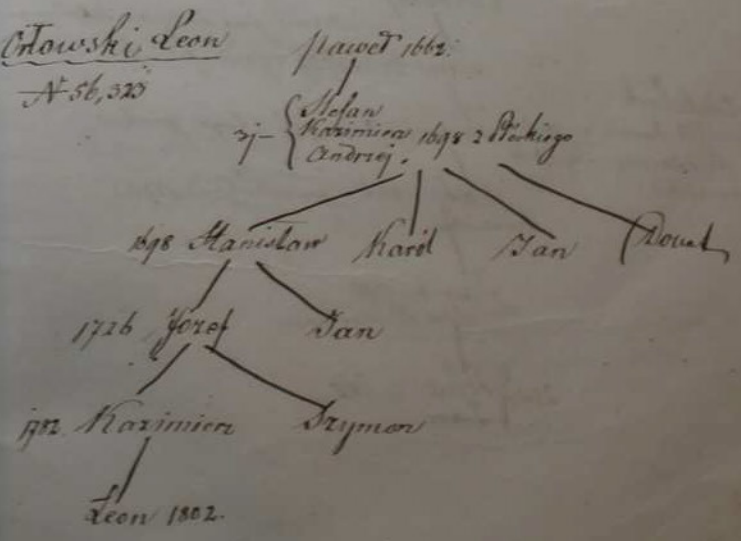 Orłowski Leon
N 56,323
Paweł 1662.
Stefan
Kazimierz 1698 z Płockiego
Andrzej.
1698 Stanisław Karol Jan
1726 Jozef Jan
Kazimierz Szymon
Leon 1802.